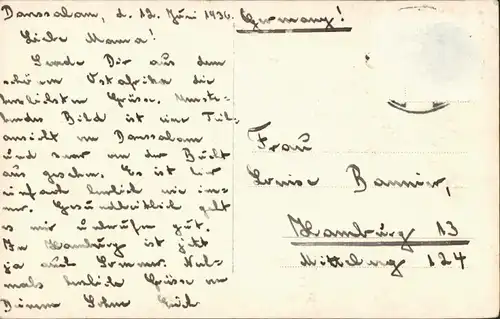 Daressalam, d. 12. Juni 1936.
Liebe Mama!
Sende Dir aus dem
schönen Ostafrika die
herzlichsten Grüsse. Umste-
hendes Bild ist eine Teil-
ansicht von Daressalam
und zwar von der Bucht
aus gesehen. Es ist hier
einfach herrlich wie im-
mer. Gesundheitlich geht
es mir unberufen gut.
In Hamburg ist jetzt
ja auch Sommer. Noch-
mals herzliche Grüsse von
Deinem Sohn Erich
Germany!
Frau
Louise Bannier,
Hamburg 13
Mittelweg 124